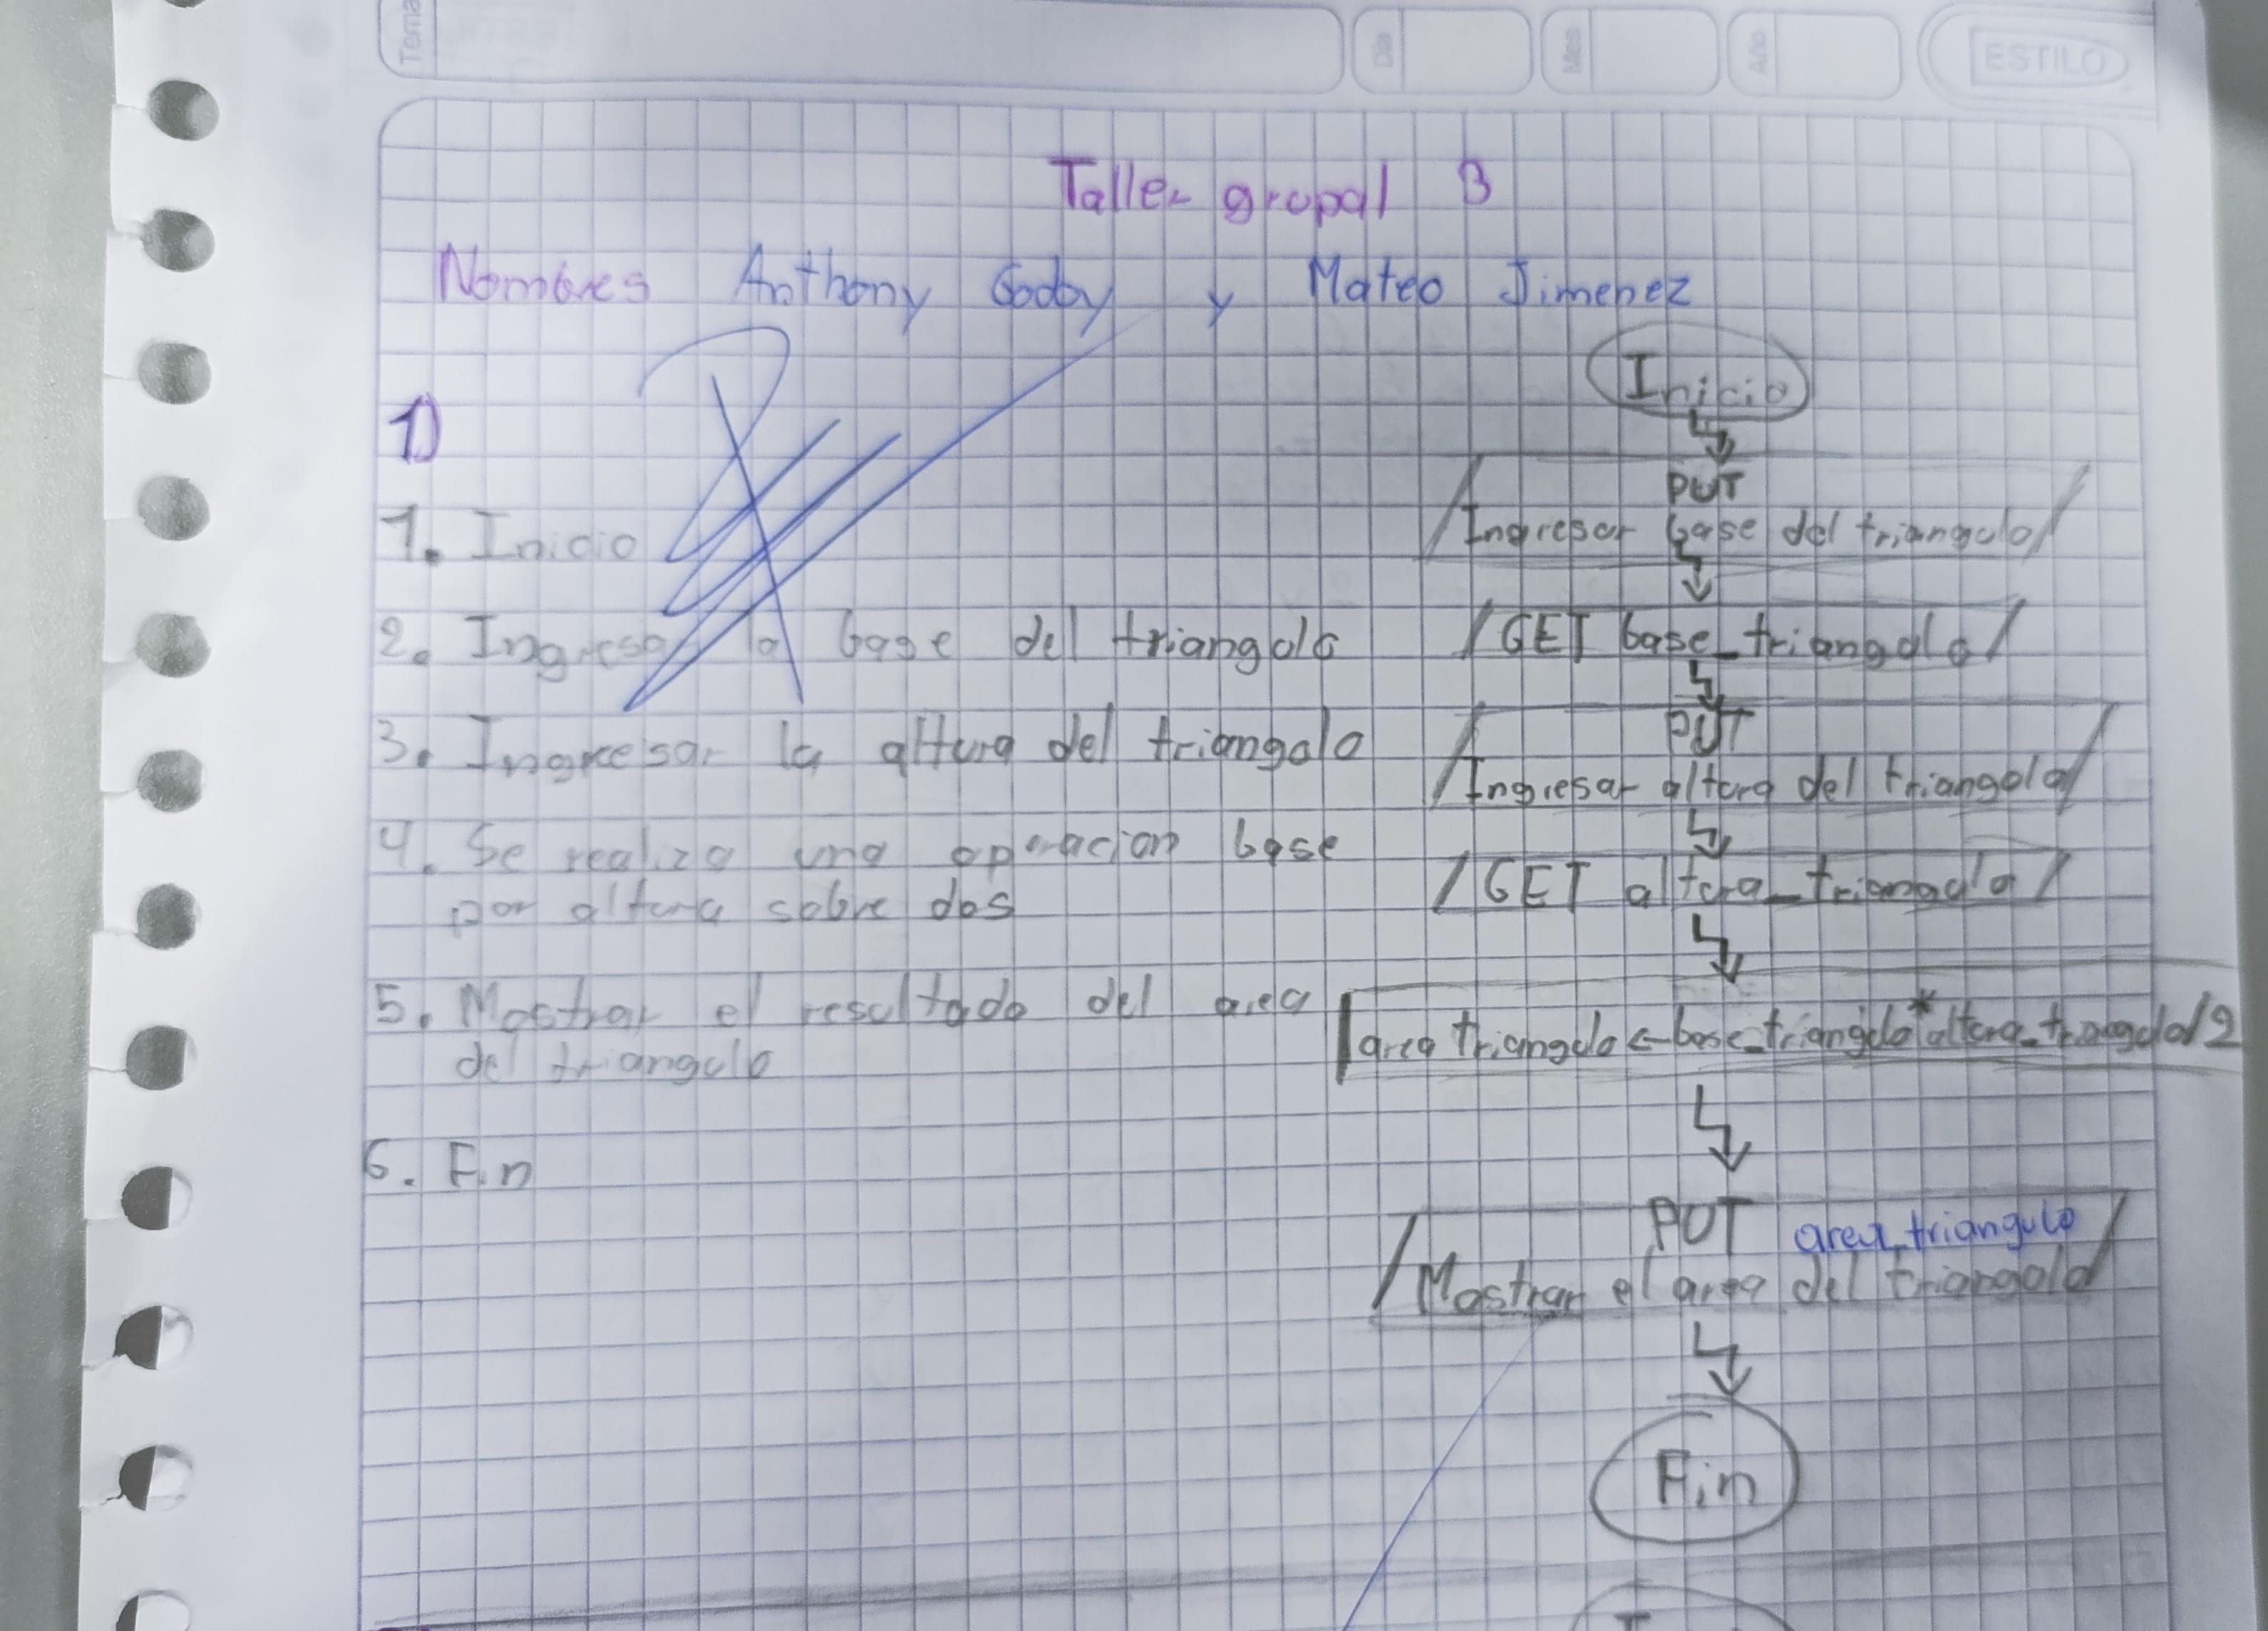 Tema
Día
Mes
Año
ESTILO
Taller grupal 3
Nombres Anthony Godoy y Mateo Jimenez
1)
1. Inicio
2. Ingresar la base del triangulo
3. Ingresar la altura del triangulo
4. Se realiza una operacion base
por altura sobre dos
5. Mostrar el resultado del area
del triangulo
6. Fin
Inicio
PUT
Ingresar base del triangulo
GET base_triangulo
PUT
Ingresar altura del triangulo
GET altura_triangulo
area triangulo ← base_triangulo * altura_triangulo/2
PUT area_triangulo
Mostrar el area del triangulo
Fin